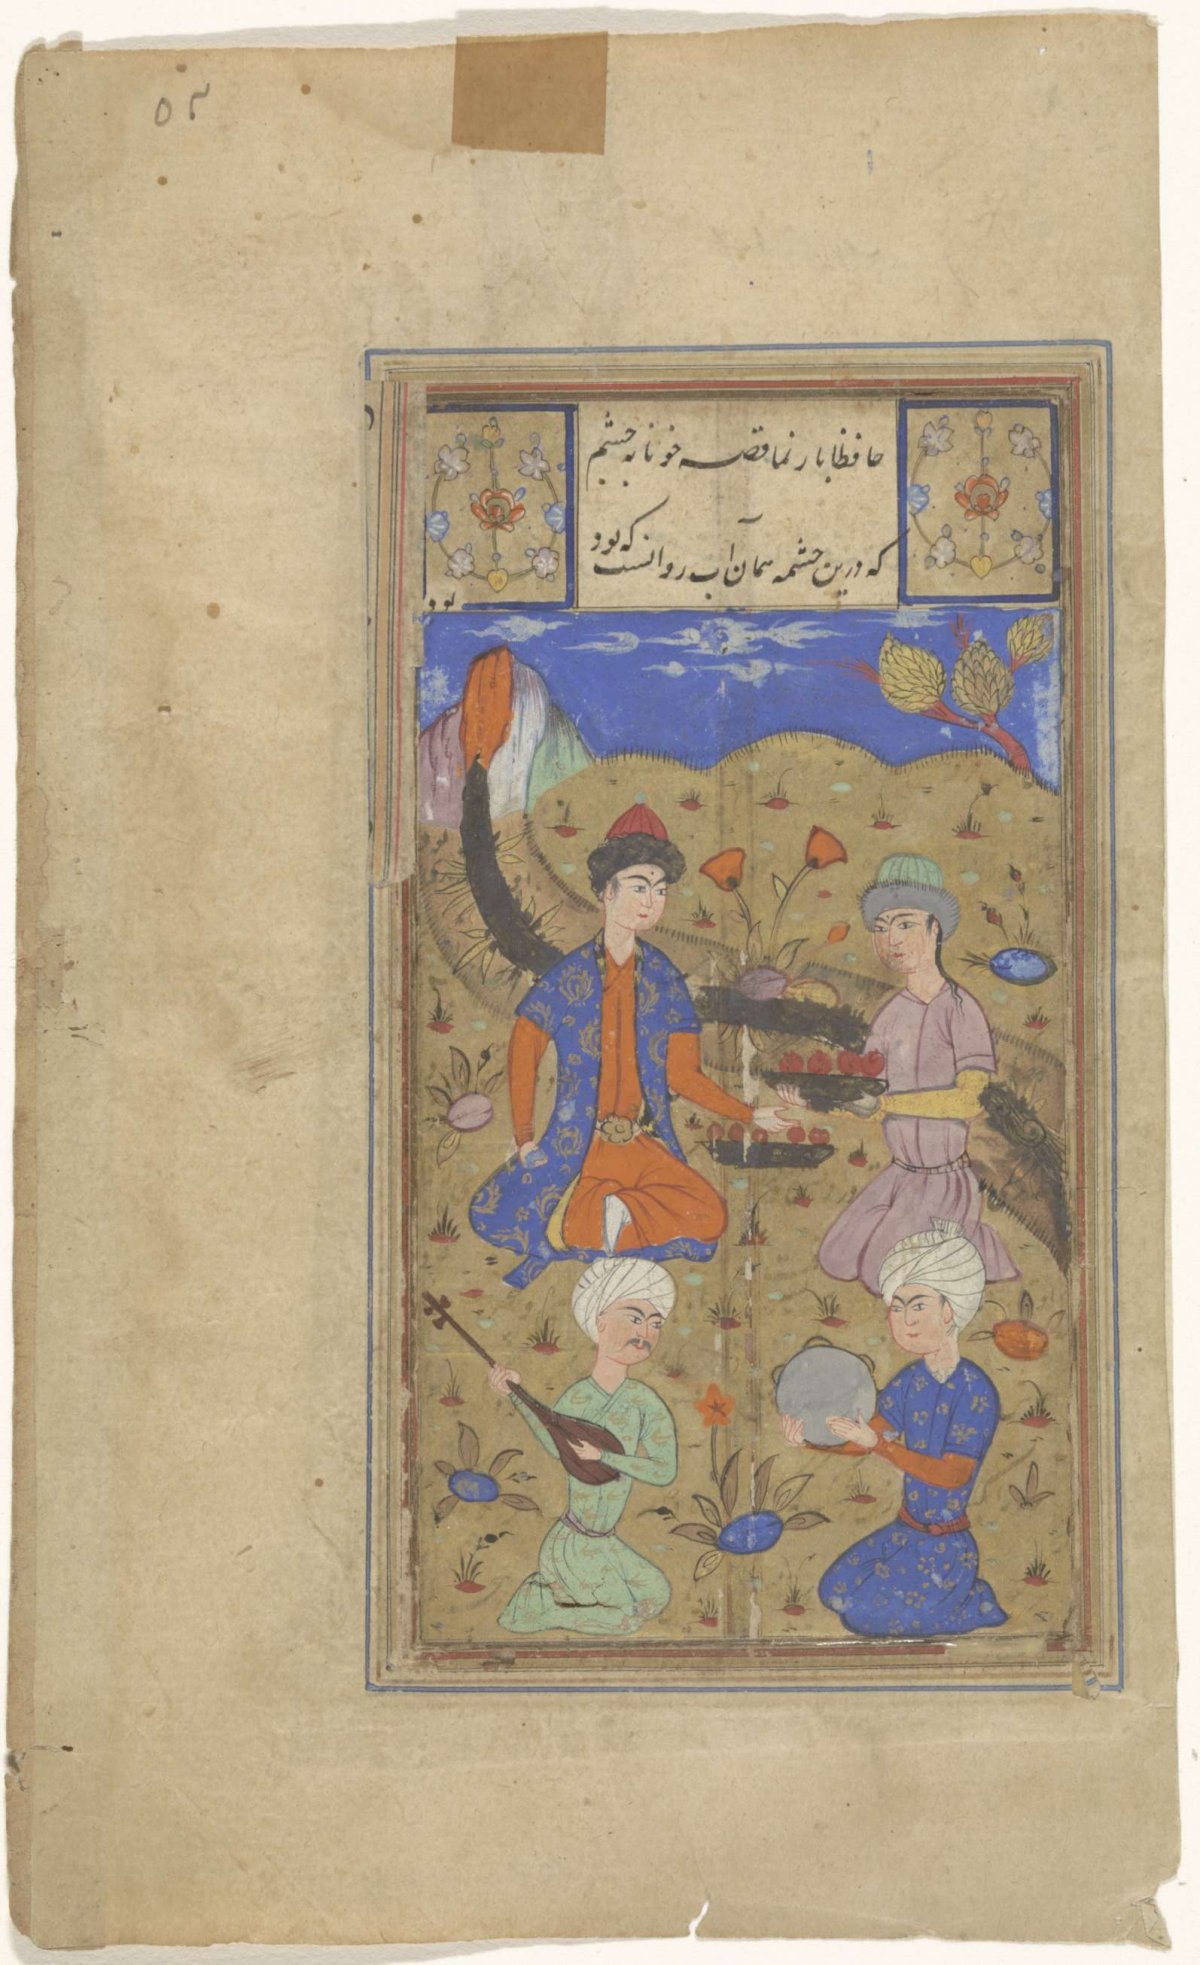 ٥٢
حافظا باز نما قصه خونابه چشم
که درین چشمه همان آب روانست که بود
بود